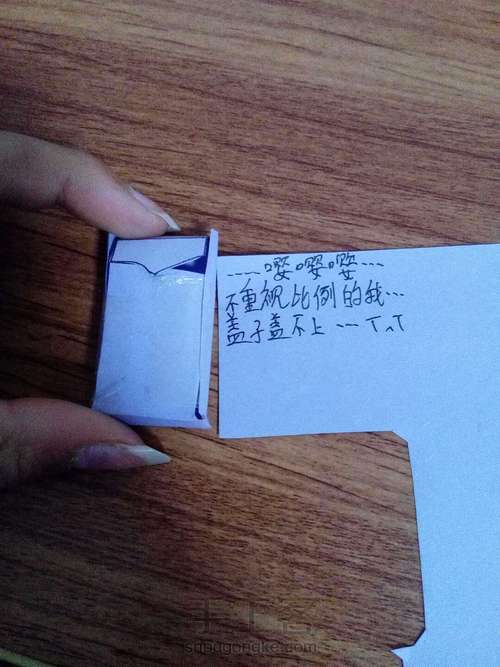 ----嘤嘤嘤---
不重视比例的我…
盖子盖不上 --- T^T
shougongke.com